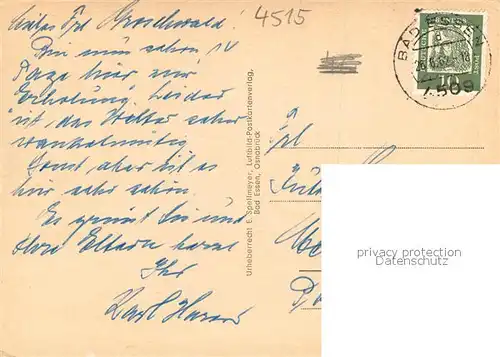 4515
Liebes Frl. Graschwald!
Bin nun schon 14
Tage hier zur
Erholung. Leider
ist das Wetter sehr
wankelmütig
Sonst aber ist es
hier sehr schön.
Es grüsst Sie und
Ihre Eltern herzl
Ihr
Karl
Urheberrecht E. Spellmeyer, Luftbild-Postkartenverlag,
Bad Essen, Osnabrück
BAD ESSEN
a
10
Frl
privacy protection
Datenschutz